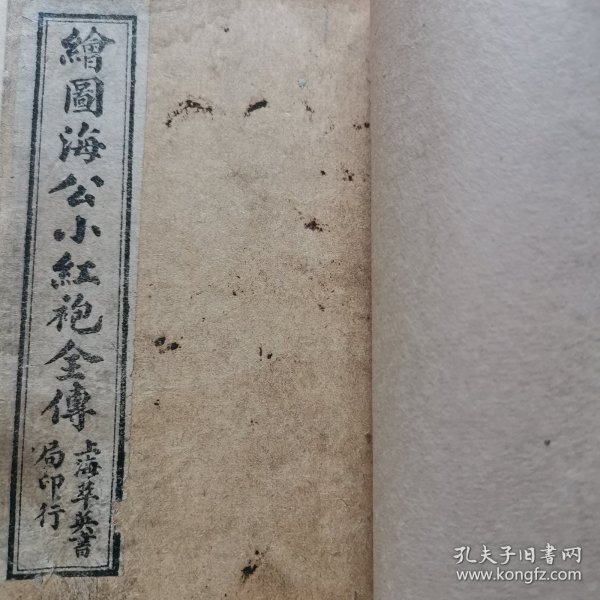 繪圖海公小紅袍全傳
上海萃英書
局印行
孔夫子旧书网
www.kongfz.com